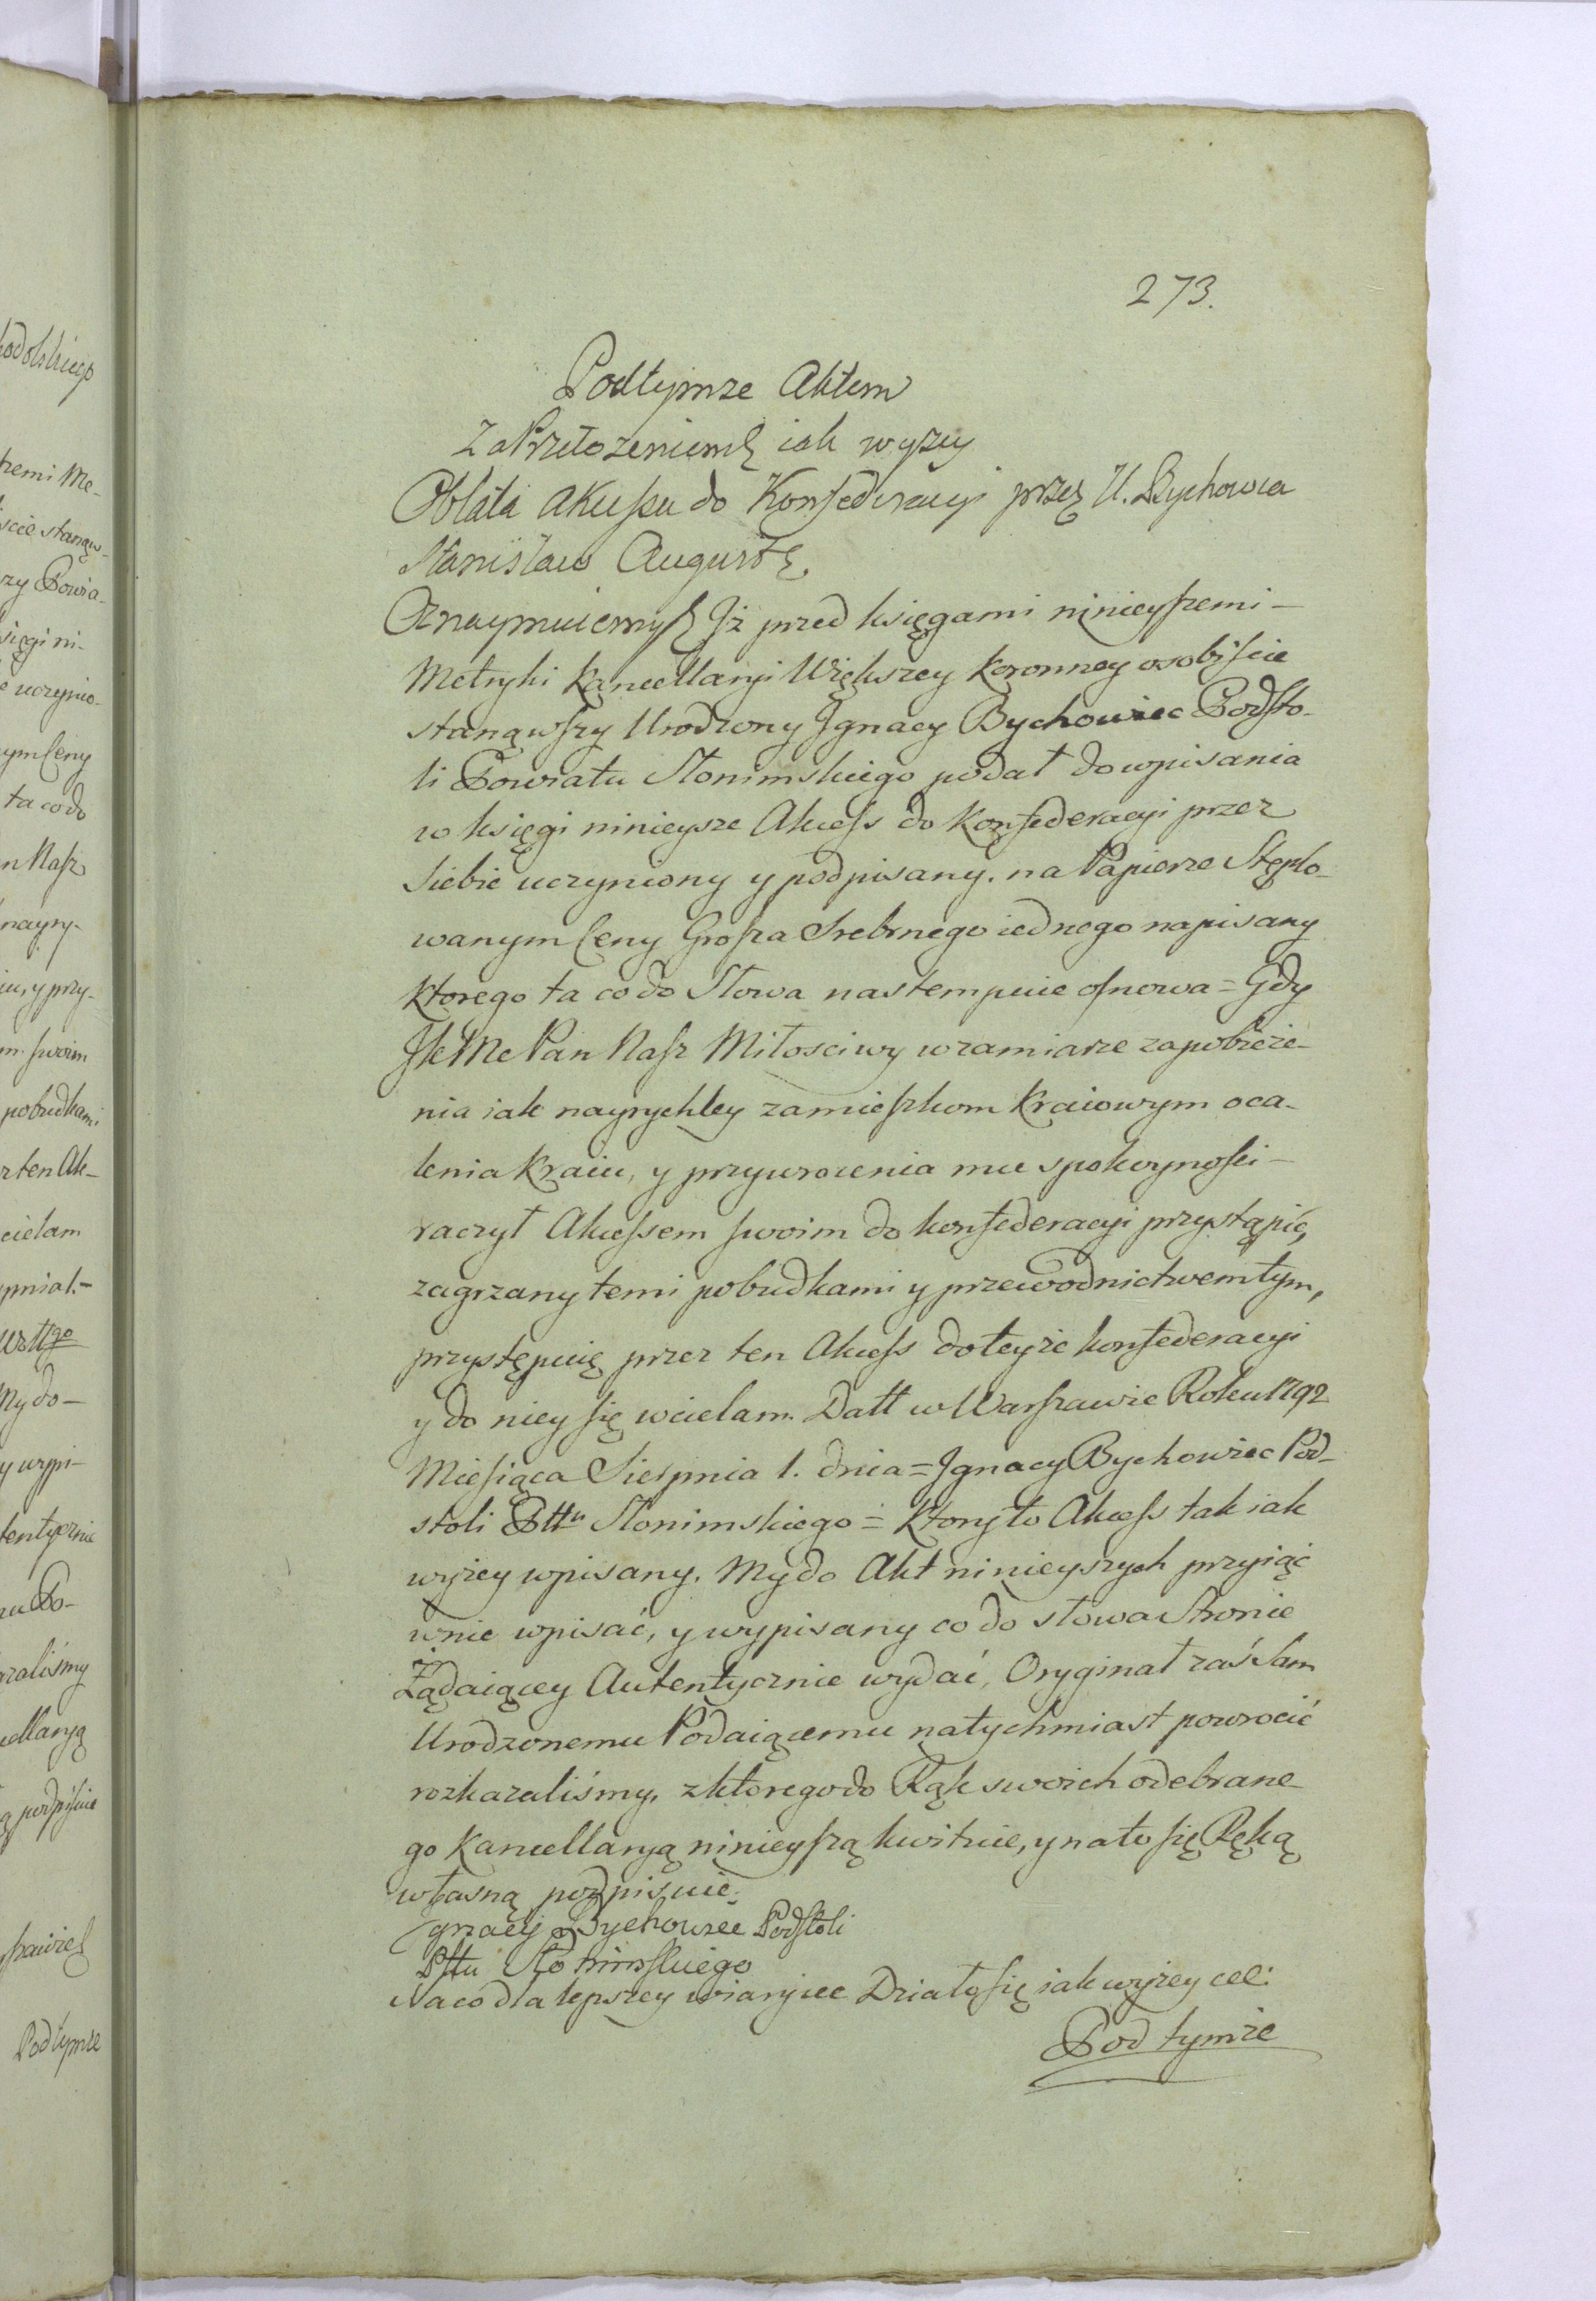 273.
Podtymze Aktem
Z Przełozeniem iak wyzey
Oblata Akcessu do Konfederacyi przez U. Bychowca
Stanisław August
Oznaymuiemy Iż przed księgami ninieyszemi-
Metryki Kancellaryi Większey Koronney osobiście
stanąwszy Urodzony Jgnacy Bychowiec Podsto-
li Powiatu Słonimskiego podał do wpisania
w księgi ninieysze Akcess do Konfederacyi przez
Siebie uczyniony y podpisany. na Papierze Stęplo-
wanym Ceny Grosza Srebrnego iednego napisany
Ktorego ta co do Słowa nastempuie osnowa = Gdy
JKMc Pan Nasz Miłosciwy w zamiarze zapobieże-
nia iak nayrychley zamieszkom Kraiowym oca-
lenia Kraiu, y przywrocenia mu spokoyności-
raczył Akcessem swoim do konfederacyi przystąpić,
zagrzany temi pobudkami y przewodnictwem tym,
przystępuię przez ten Akcess do teyże konfederacyi
y do niey się wcielam. Datt w Warszawie Roku 1792
Miesiąca Sierpnia 1. dnia = Jgnacy Bychowiec Pod-
stoli Pttu Słonimskiego = Ktory to Akcess tak iak
wyżey wpisany. My do Akt ninieyszych przyiąć
w nie wpisać, y wypisany co do słowa Stronie
Żądaiącey Autentycznie wydać, Oryginał zaś Sam
Urodzonemu Podaiącemu natychmiast powrocić
rozkazaliśmy, z ktorego do Rąk swoich odebrane-
go Kancellaryą ninieyszą kwituie, y na to się Ręką
własną podpisuie.
Jgnacy Bychowiec Podstoli
Pttu Słonimskiego
Na co dla lepszey wiary ucc Działo się iak wyżey cec:
Pod tymże